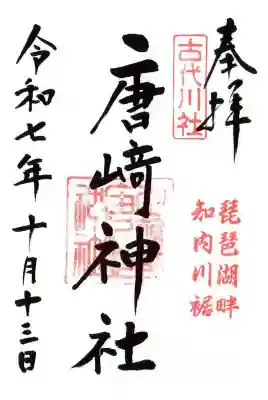 奉拝
古代川社
琵琶湖畔
知内川裾
唐崎神社
令和七年十月十三日